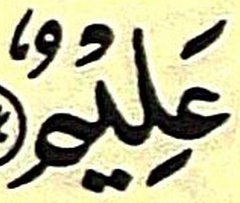 عَلِيْمٌ